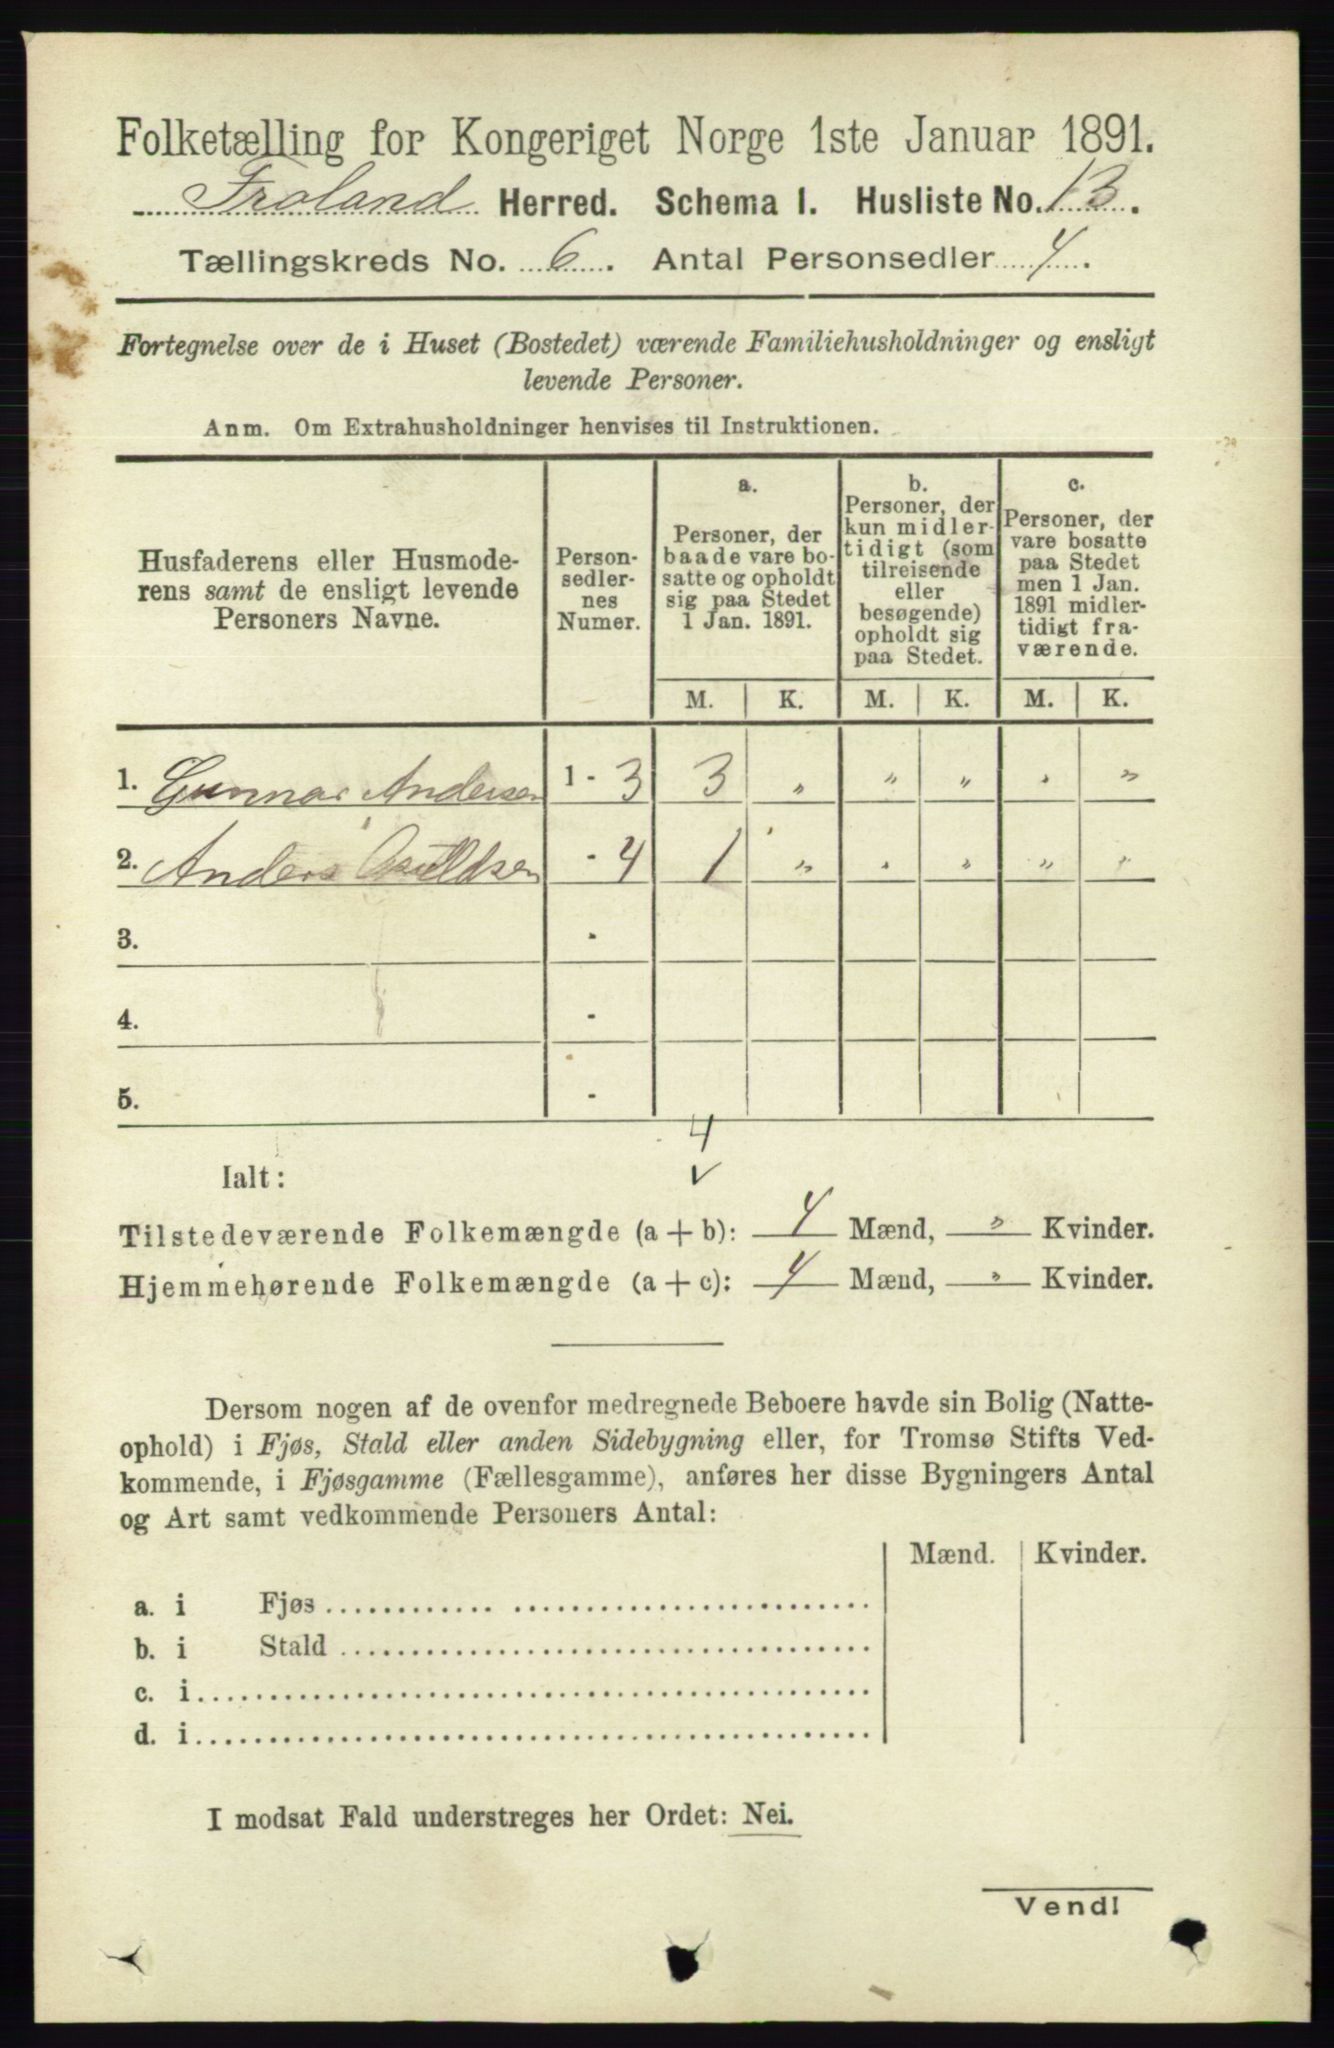 Folketælling for Kongeriget Norge 1ste Januar 1891.
Froland Herred. Schema I. Husliste No. 13.
Tællingskreds No. 6. Antal Personsedler 4.
Fortegnelse over de i Huset (Bostedet) værende Familiehusholdninger og ensligt
levende Personer.
Anm. Om Extrahusholdninger henvises til Instruktionen.
Husfaderens eller Husmode-
rens samt de ensligt levende
Personers Navne.
Person-
sedler-
nes
Numer.
a.
Personer, der
baade vare bo-
satte og opholdt
sig paa Stedet
1 Jan. 1891.
b.
Personer, der
kun midler-
tidigt (som
tilreisende
eller
besøgende)
opholdt sig
paa Stedet.
c.
Personer, der
vare bosatte
paa Stedet
men 1 Jan.
1891 midler-
tidigt fra-
værende.
M. K. M. K. M. K.
1. Gunnar Andersen 1 - 3 3 " " " " "
2. Anders - 4 1 " " " " "
3. -
4. -
5. -
4
Ialt: ✓
Tilstedeværende Folkemængde (a + b): 4 Mænd, " Kvinder.
Hjemmehørende Folkemængde (a + c): 4 Mænd, " Kvinder.
Dersom nogen af de ovenfor medregnede Beboere havde sin Bolig (Natte-
ophold) i Fjøs, Stald eller anden Sidebygning eller, for Tromsø Stifts Ved-
kommende, i Fjøsgamme (Fællesgamme), anføres her disse Bygningers Antal
og Art samt vedkommende Personers Antal:
Mænd. Kvinder.
a. i Fjøs
b. i Stald
c. i
d. i
I modsat Fald understreges her Ordet: Nei.
Vend!